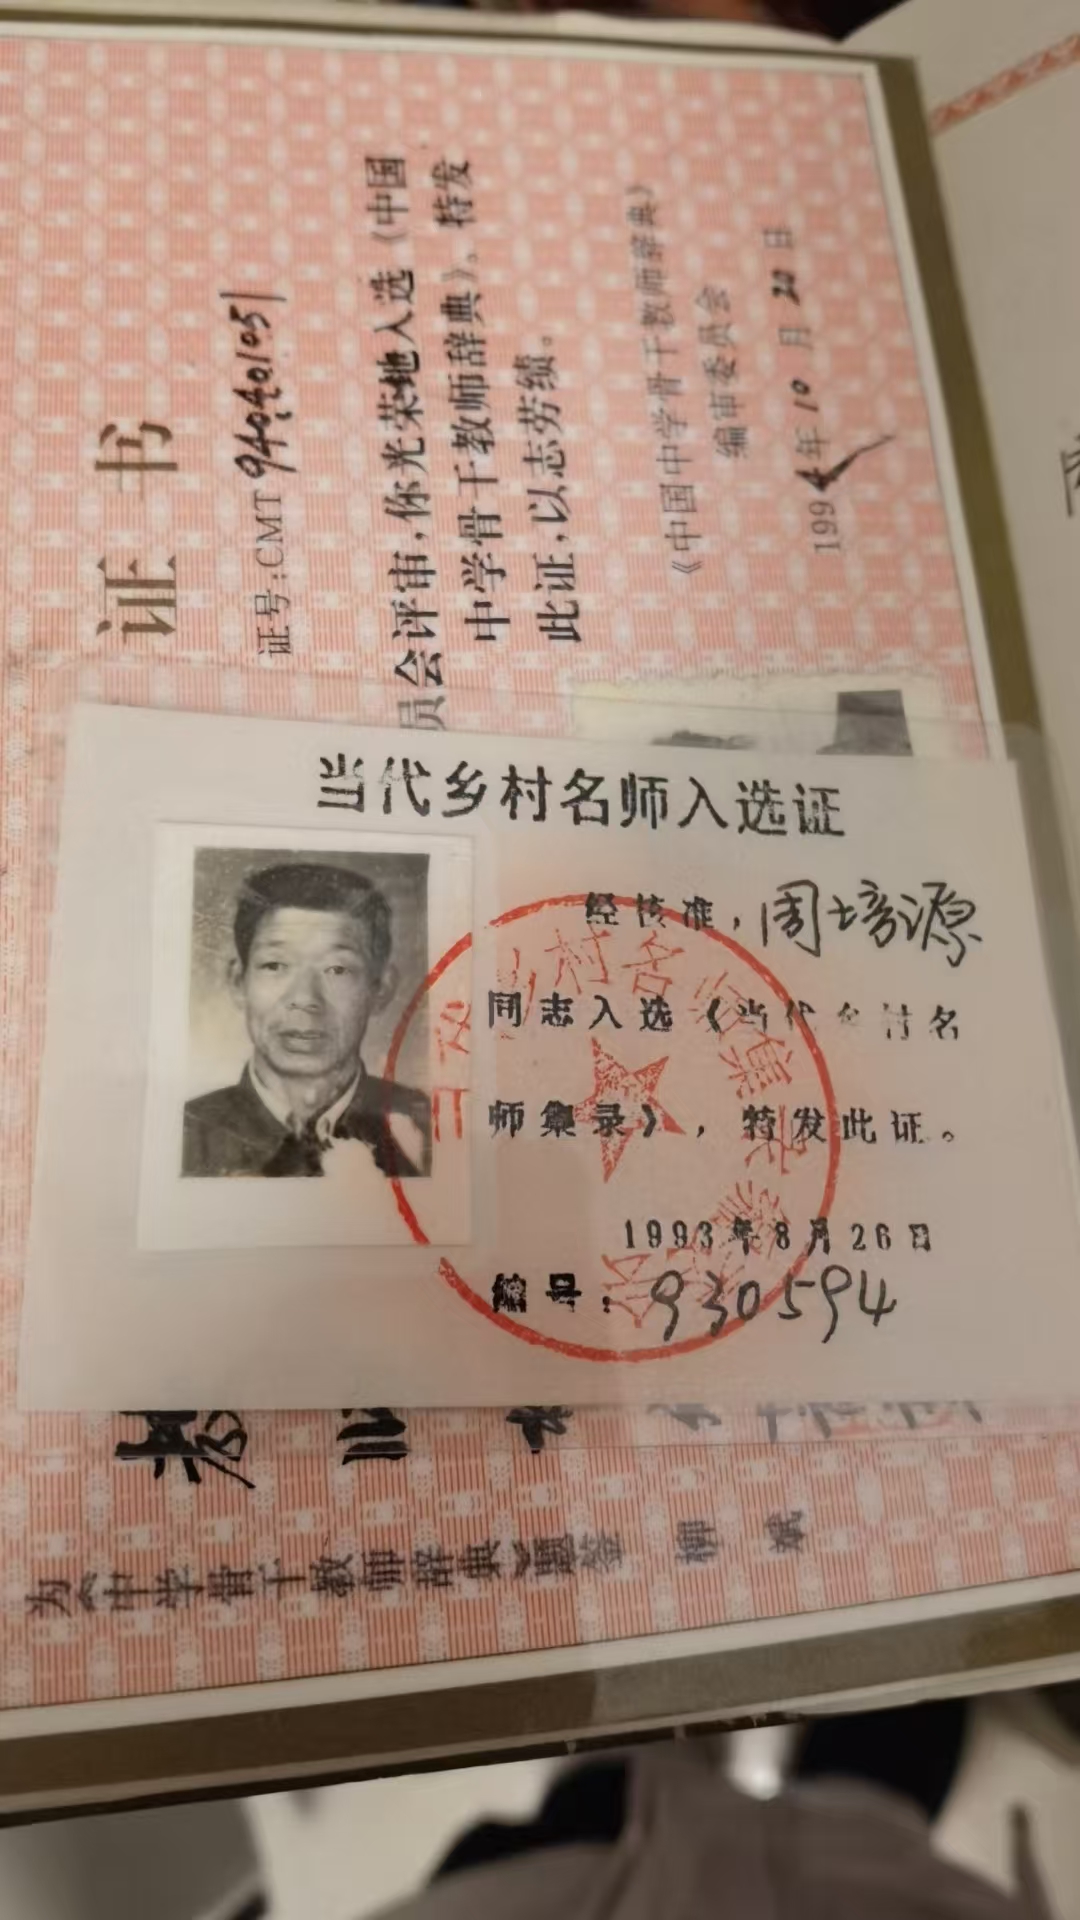 证书
证号:CMT 94040105
员会评审,你光荣地入选《中国
中学骨干教师辞典》,特发
此证,以志劳绩。
《中国中学骨干教师辞典》
编审委员会
1994年10月20日
当代乡村名师入选证
经核准,周培源
同志入选《当代乡村名
师集录》,特发此证。
1993年8月26日
930594
为《中学骨干教师辞典》题签 柳斌